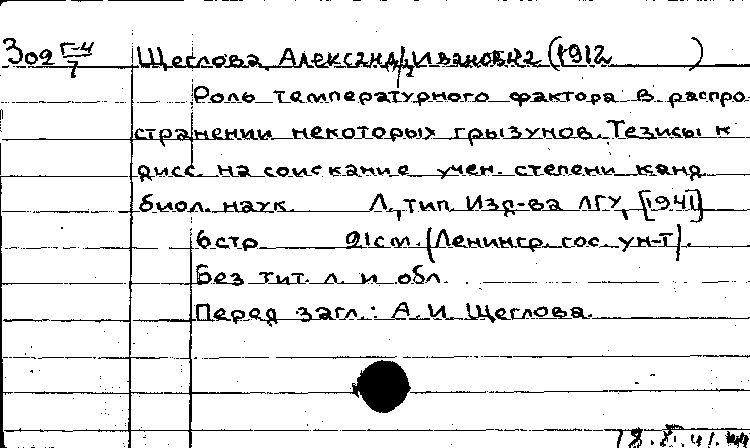 Зоо Г-4/7 Щеглова, Александра Ивановна (1912 )
Роль температурного фактора в распро
странении некоторых грызунов. Тезисы к
дисс. на соискание учен. степени канд.
биол. наук. Л., тип. Изд-ва ЛГУ, [1941]
6 стр 21 см. (Ленингр. гос. ун-т).
Без тит. л. и обл.
Перед загл.: А. И. Щеглова.